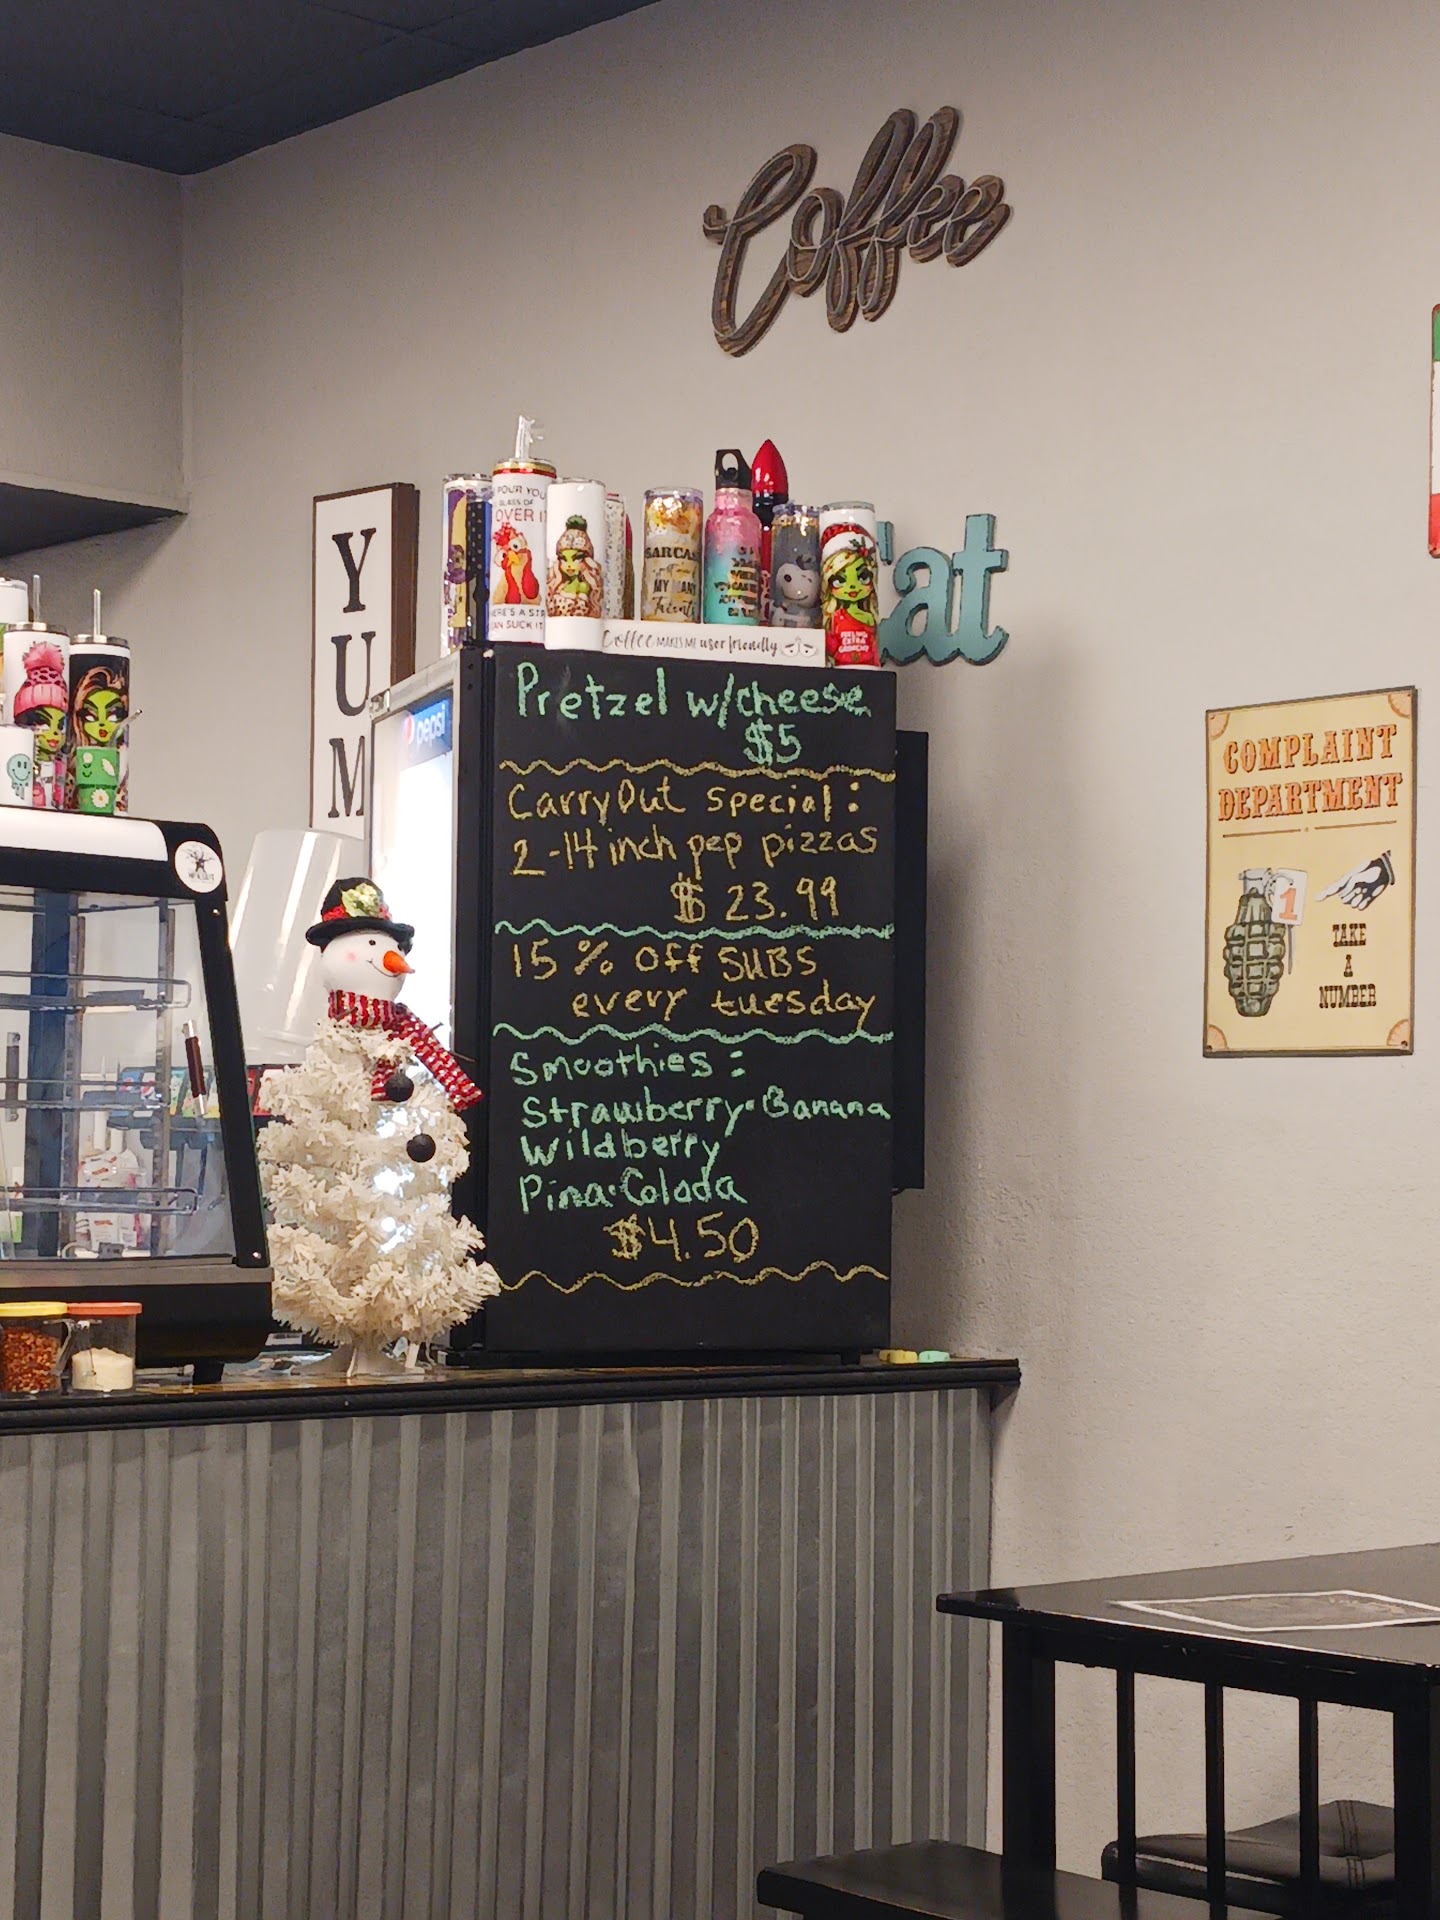 Coffee
YUM
'at
POUR YOU
GLASS OF
OVER IT
HERE'S A STR
CAN SUCK IT
SARCAS
MY MANY
Talents
FEELING
EXTRA
GRINCHY
Coffee MAKES ME user friendly
pepsi
Pretzel w/cheese
$5
CarryOut special:
2-14 inch pep pizzas
$23.99
15% off SUBS
every tuesday
Smoothies:
Strawberry-Banana
Wildberry
Pina-Colada
$4.50
COMPLAINT
DEPARTMENT
1
TAKE
A
NUMBER